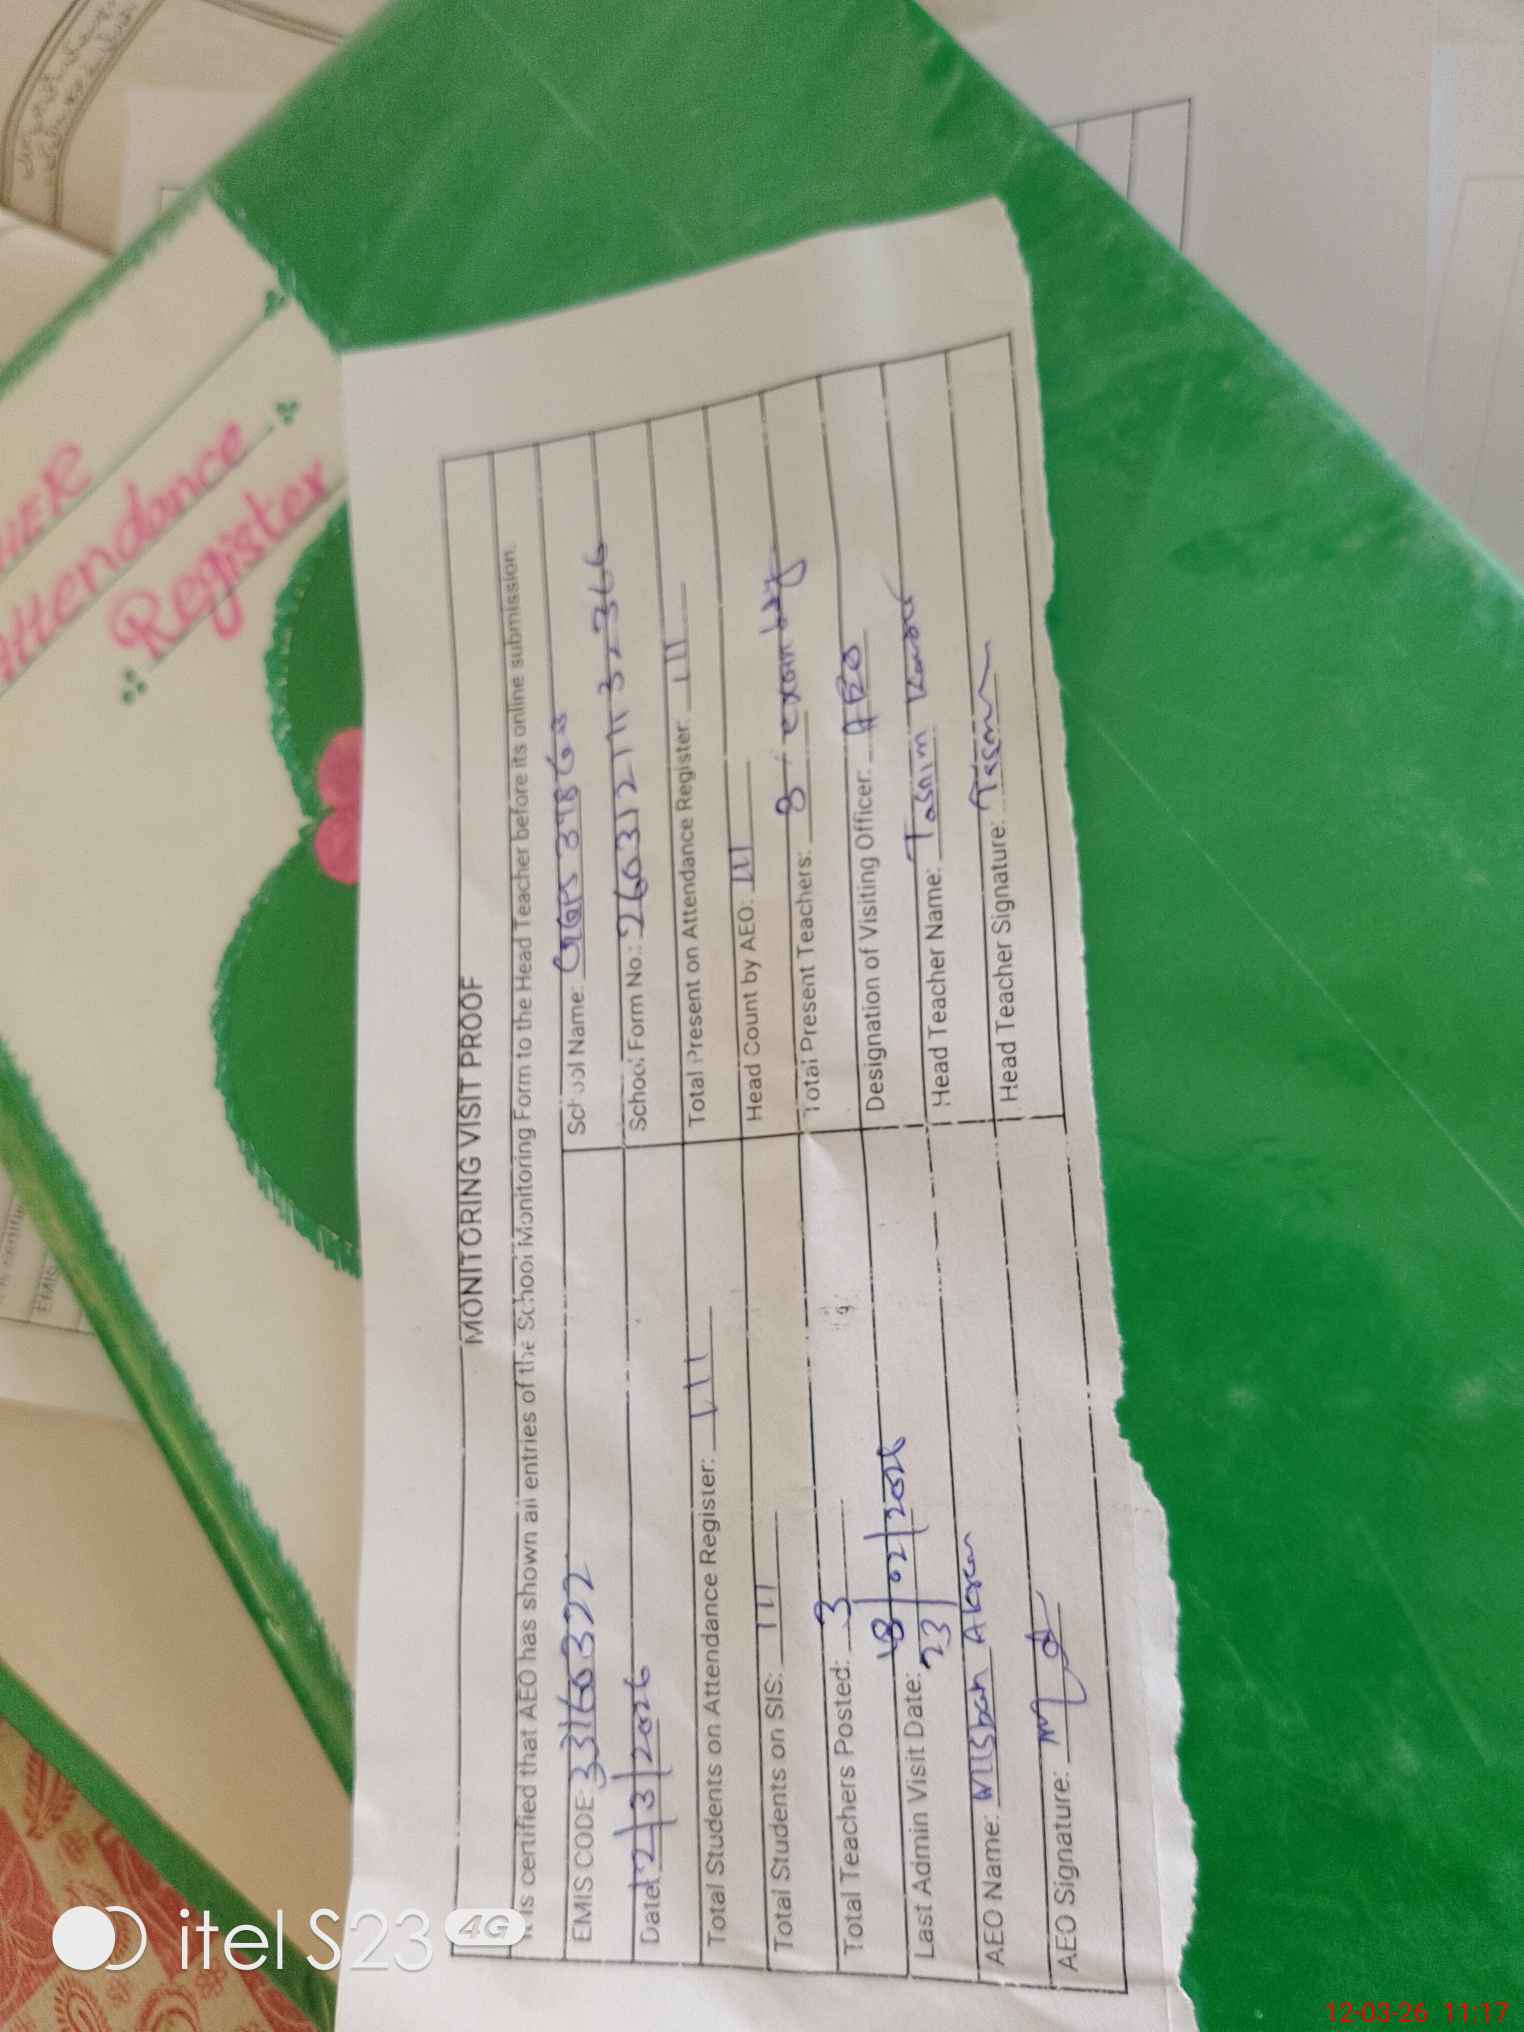 MONITORING VISIT PROOF
It is certified that AEO has shown all entries of the School Monitoring Form to the Head Teacher before its online submission.
EMIS CODE: 33160322
School Name: GGPS
Date: 12/3/2026
School Form No.: 26031211132366
Total Students on Attendance Register: 111
Total Present on Attendance Register: 111
Total Students on SIS: 111
Head Count by AEO: 111
Total Teachers Posted: 3
Total Present Teachers: exam duty
Last Admin Visit Date: 23 18/02/2026
Designation of Visiting Officer: AEO
AEO Name: Misbah Akram
Head Teacher Name: Tasnim Kausar
AEO Signature:
Head Teacher Signature: Tasnim
HER
Attendance
Register
EMIS
itel S23 4G
12-03-26 11:17